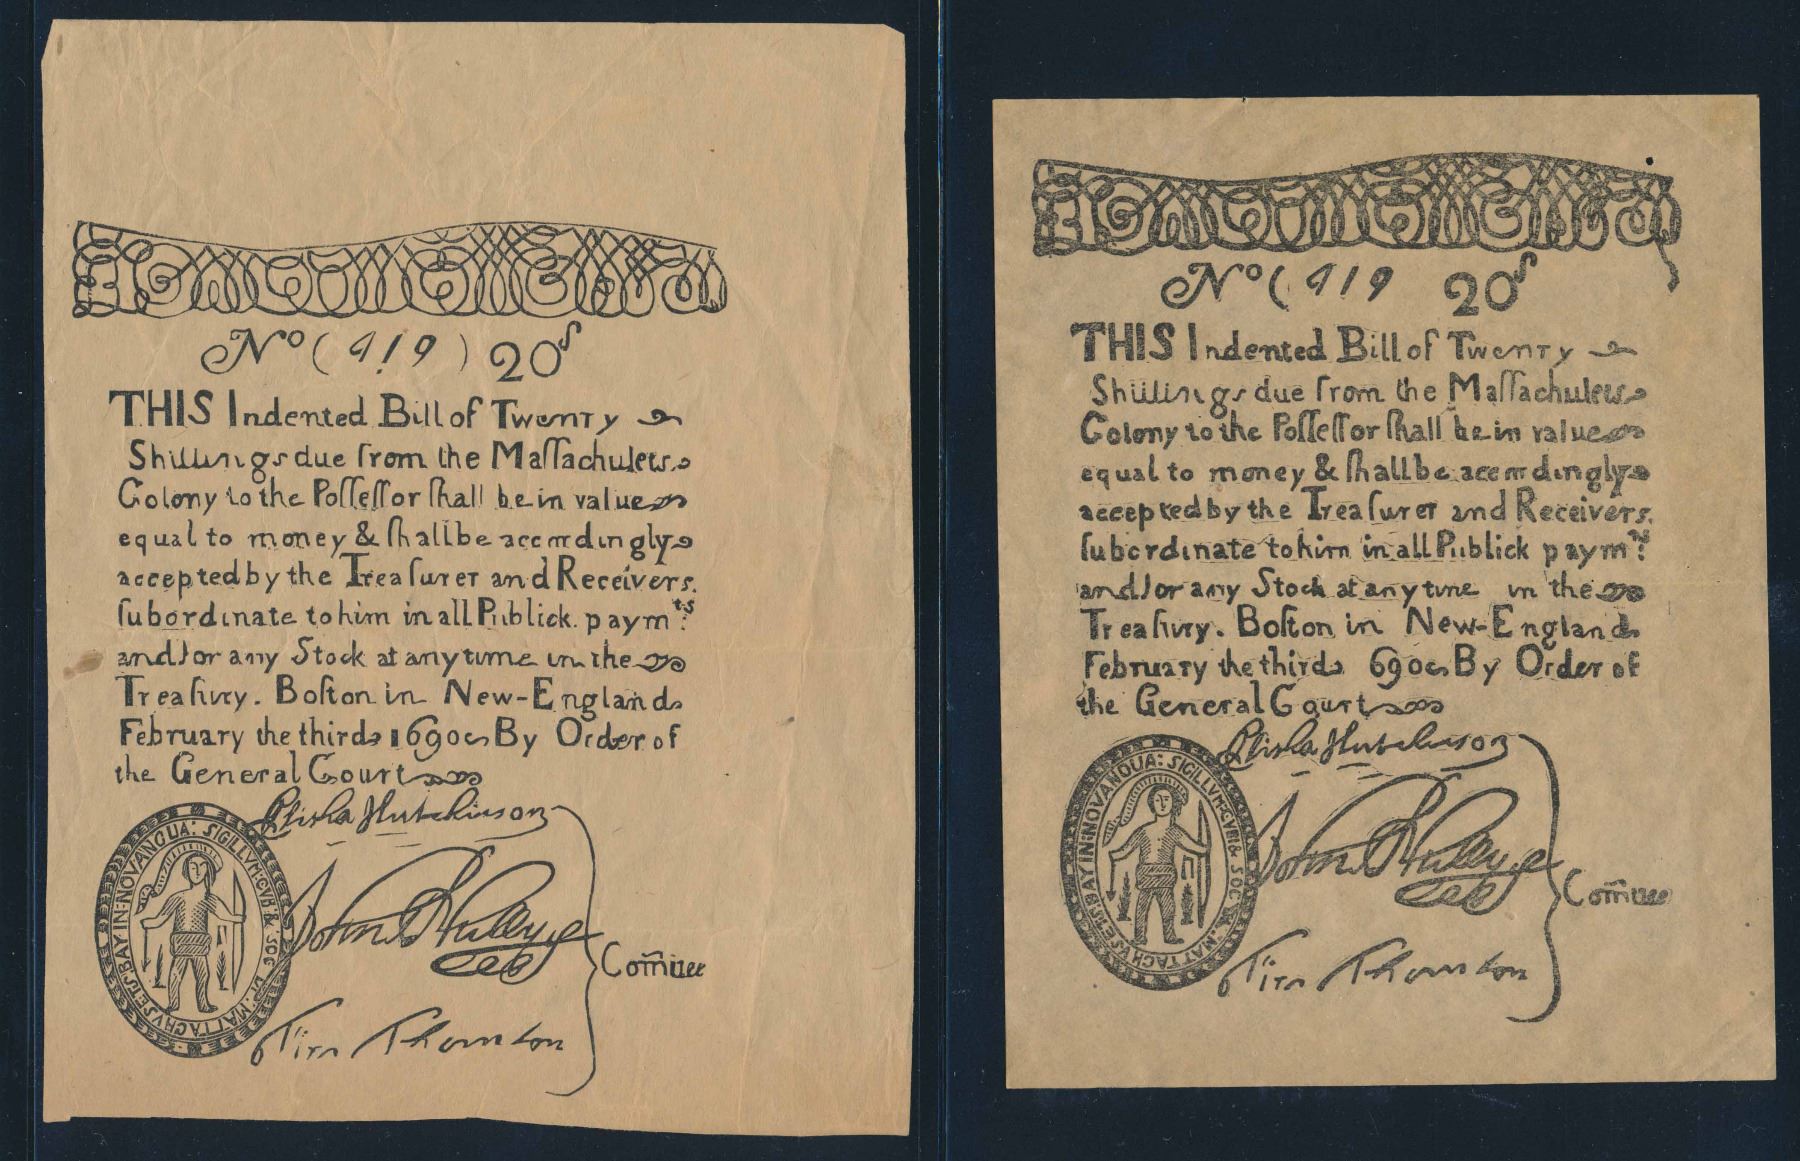 No (419) 20s
THIS Indented Bill of Twenty
Shillings due from the Maſſachuſets
Colony to the Poſſeſſor ſhall be in value
equal to money & ſhall be accordingly
accepted by the Treaſurer and Receivers
ſubordinate to him in all Publick paymts:
and for any Stock at any time in the
Treaſury. Boſton in New-England
February the third 1690 By Order of
the General Court
Elisha Hutchinson
John Walley
Tim Thornton
Comittee
SIGILLVM: GVB: & SOC: DE: MATTACHVSETS: BAY IN: NOVANGLIA:
No (419 20s
THIS Indented Bill of Twenty
Shillings due from the Maſſachuſets
Colony to the Poſſeſſor ſhall be in value
equal to money & ſhall be accordingly
accepted by the Treaſurer and Receivers
ſubordinate to him in all Publick paymts:
and for any Stock at any time in the
Treaſury. Boſton in New-England
February the third 690 By Order of
the General Court
Elisha Hutchinson
John Walley
Tim Thornton
Comittee
SIGILLVM: GVB: & SOC: DE: MATTACHVSETS: BAY IN: NOVANGLIA: